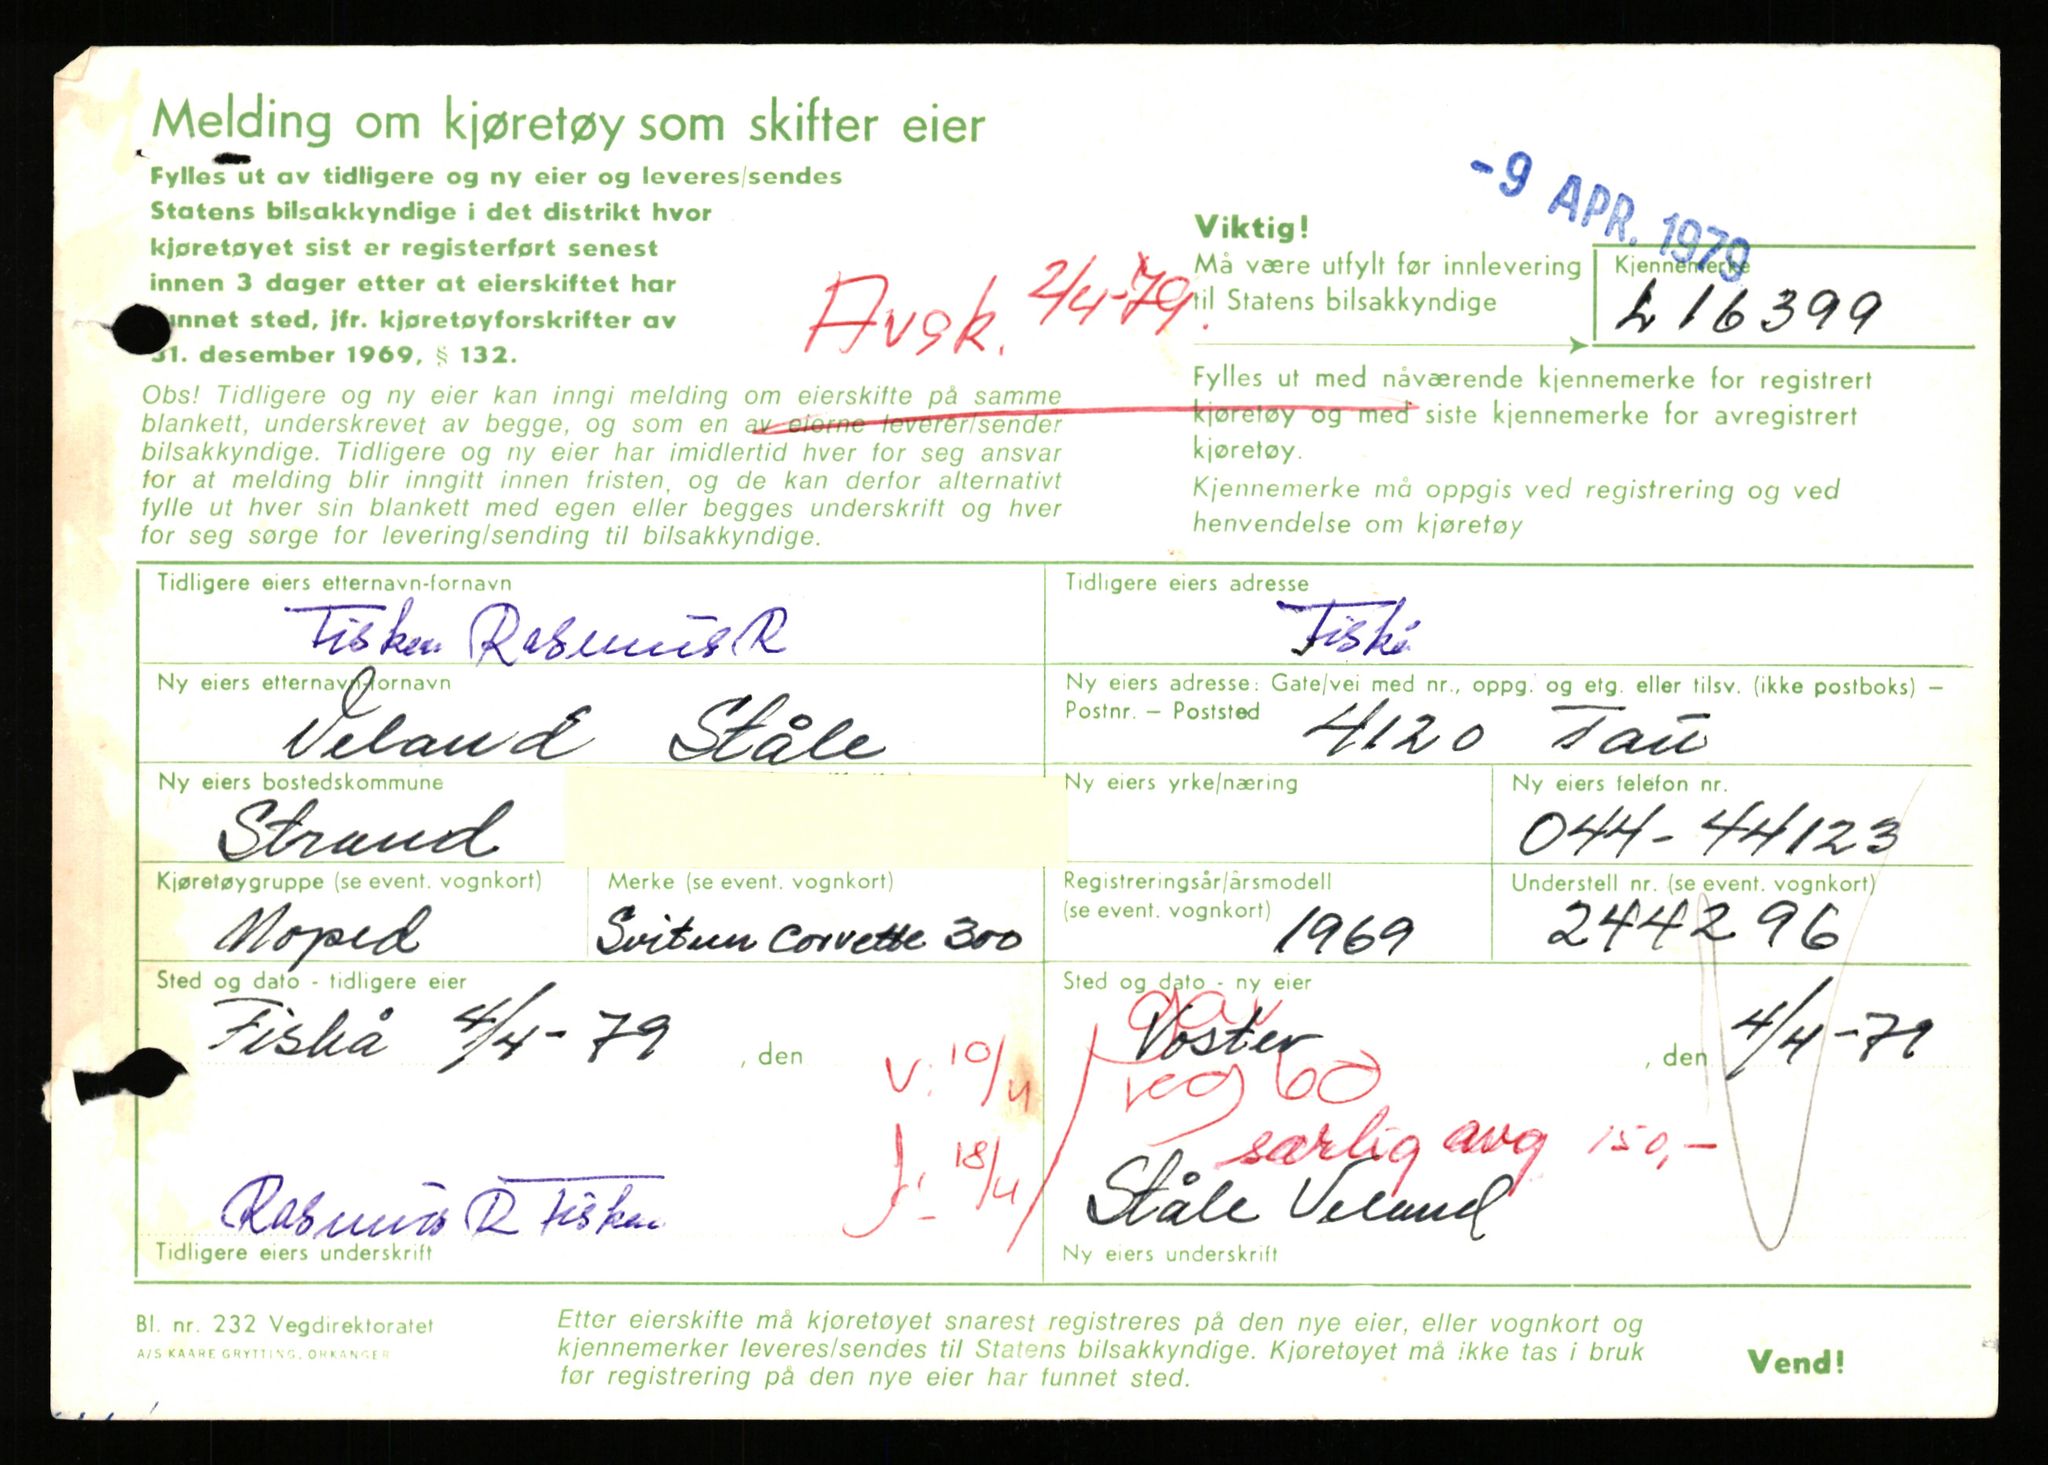 Melding om kjøretøy som skifter eier
Fylles ut av tidligere og ny eier og leveres/sendes
Statens bilsakkyndige i det distrikt hvor
kjøretøyet sist er registerført senest
innen 3 dager etter at eierskiftet har
funnet sted, jfr. kjøretøyforskrifter av
31. desember 1969, § 132.
-9 APR. 1979
Viktig!
Må være utfylt før innlevering
til Statens bilsakkyndige
Kjennemerke
L 16399
Avsk. 2/4-79.
Fylles ut med nåværende kjennemerke for registrert
kjøretøy og med siste kjennemerke for avregistrert
kjøretøy.
Kjennemerke må oppgis ved registrering og ved
henvendelse om kjøretøy
Obs! Tidligere og ny eier kan inngi melding om eierskifte på samme
blankett, underskrevet av begge, og som en av eierne leverer/sender
bilsakkyndige. Tidligere og ny eier har imidlertid hver for seg ansvar
for at melding blir inngitt innen fristen, og de kan derfor alternativt
fylle ut hver sin blankett med egen eller begges underskrift og hver
for seg sørge for levering/sending til bilsakkyndige.
Tidligere eiers etternavn-fornavn
Fisken Rasmus R
Tidligere eiers adresse
Fiskå
Ny eiers etternavn-fornavn
Veland Ståle
Ny eiers adresse: Gate/vei med nr., oppg. og etg. eller tilsv. (ikke postboks) –
Postnr. – Poststed
4120 Tau
Ny eiers bostedskommune
Strand
Ny eiers yrke/næring
Ny eiers telefon nr.
044-44123
Kjøretøygruppe (se event. vognkort)
Moped
Merke (se event. vognkort)
Svitun Corvette 300
Registreringsår/årsmodell
(se event. vognkort)
1969
Understell nr. (se event. vognkort)
2444296
Sted og dato - tidligere eier
Fiskå 4/4-79
, den
Sted og dato - ny eier
Voster
, den 4/4-79
v: 10/4
reg 60
særlig avg 150,-
18/4
Rasmus R Fisken
Tidligere eiers underskrift
Ståle Veland
Ny eiers underskrift
Bl. nr. 232 Vegdirektoratet
A/S KAARE GRYTTING, ORKANGER
Etter eierskifte må kjøretøyet snarest registreres på den nye eier, eller vognkort og
kjennemerker leveres/sendes til Statens bilsakkyndige. Kjøretøyet må ikke tas i bruk
før registrering på den nye eier har funnet sted.
Vend!